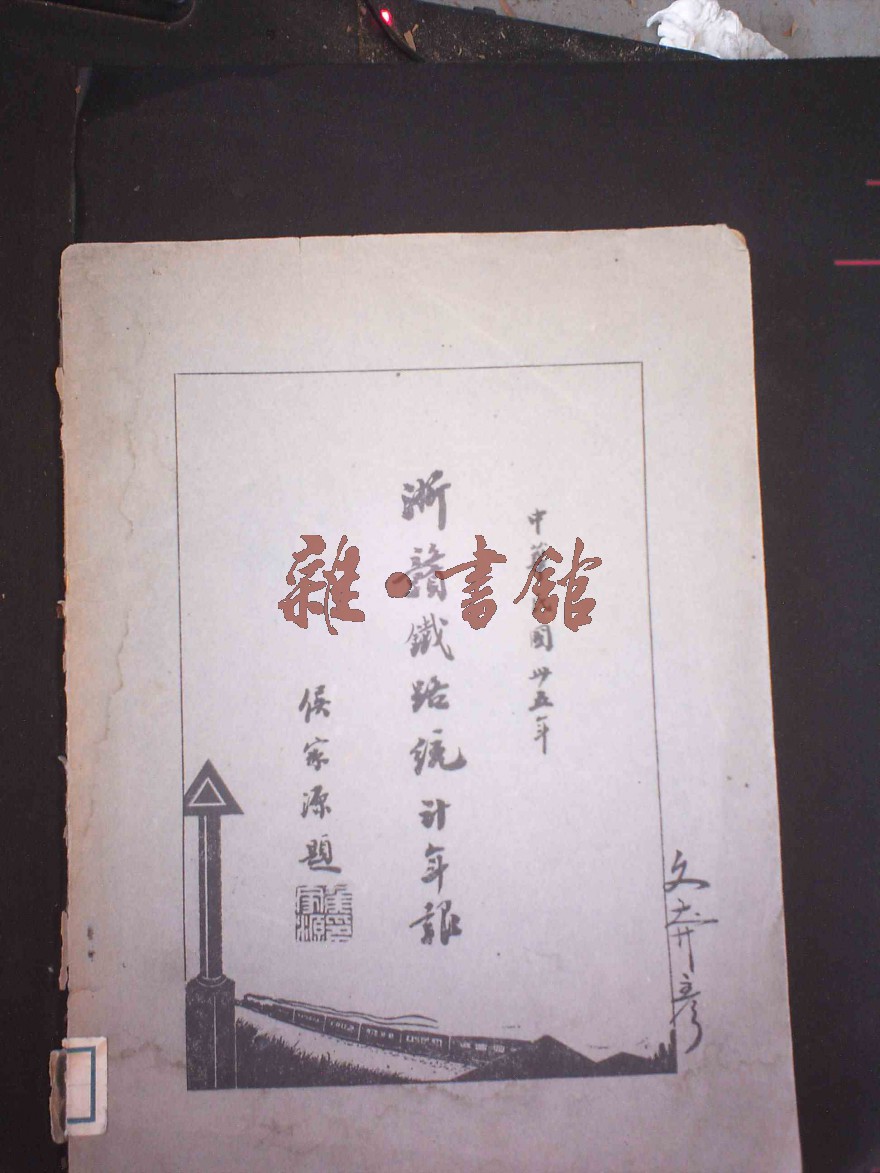 中華民國卅五年
浙贛鐵路統計年報
侯家源題
雜·書館